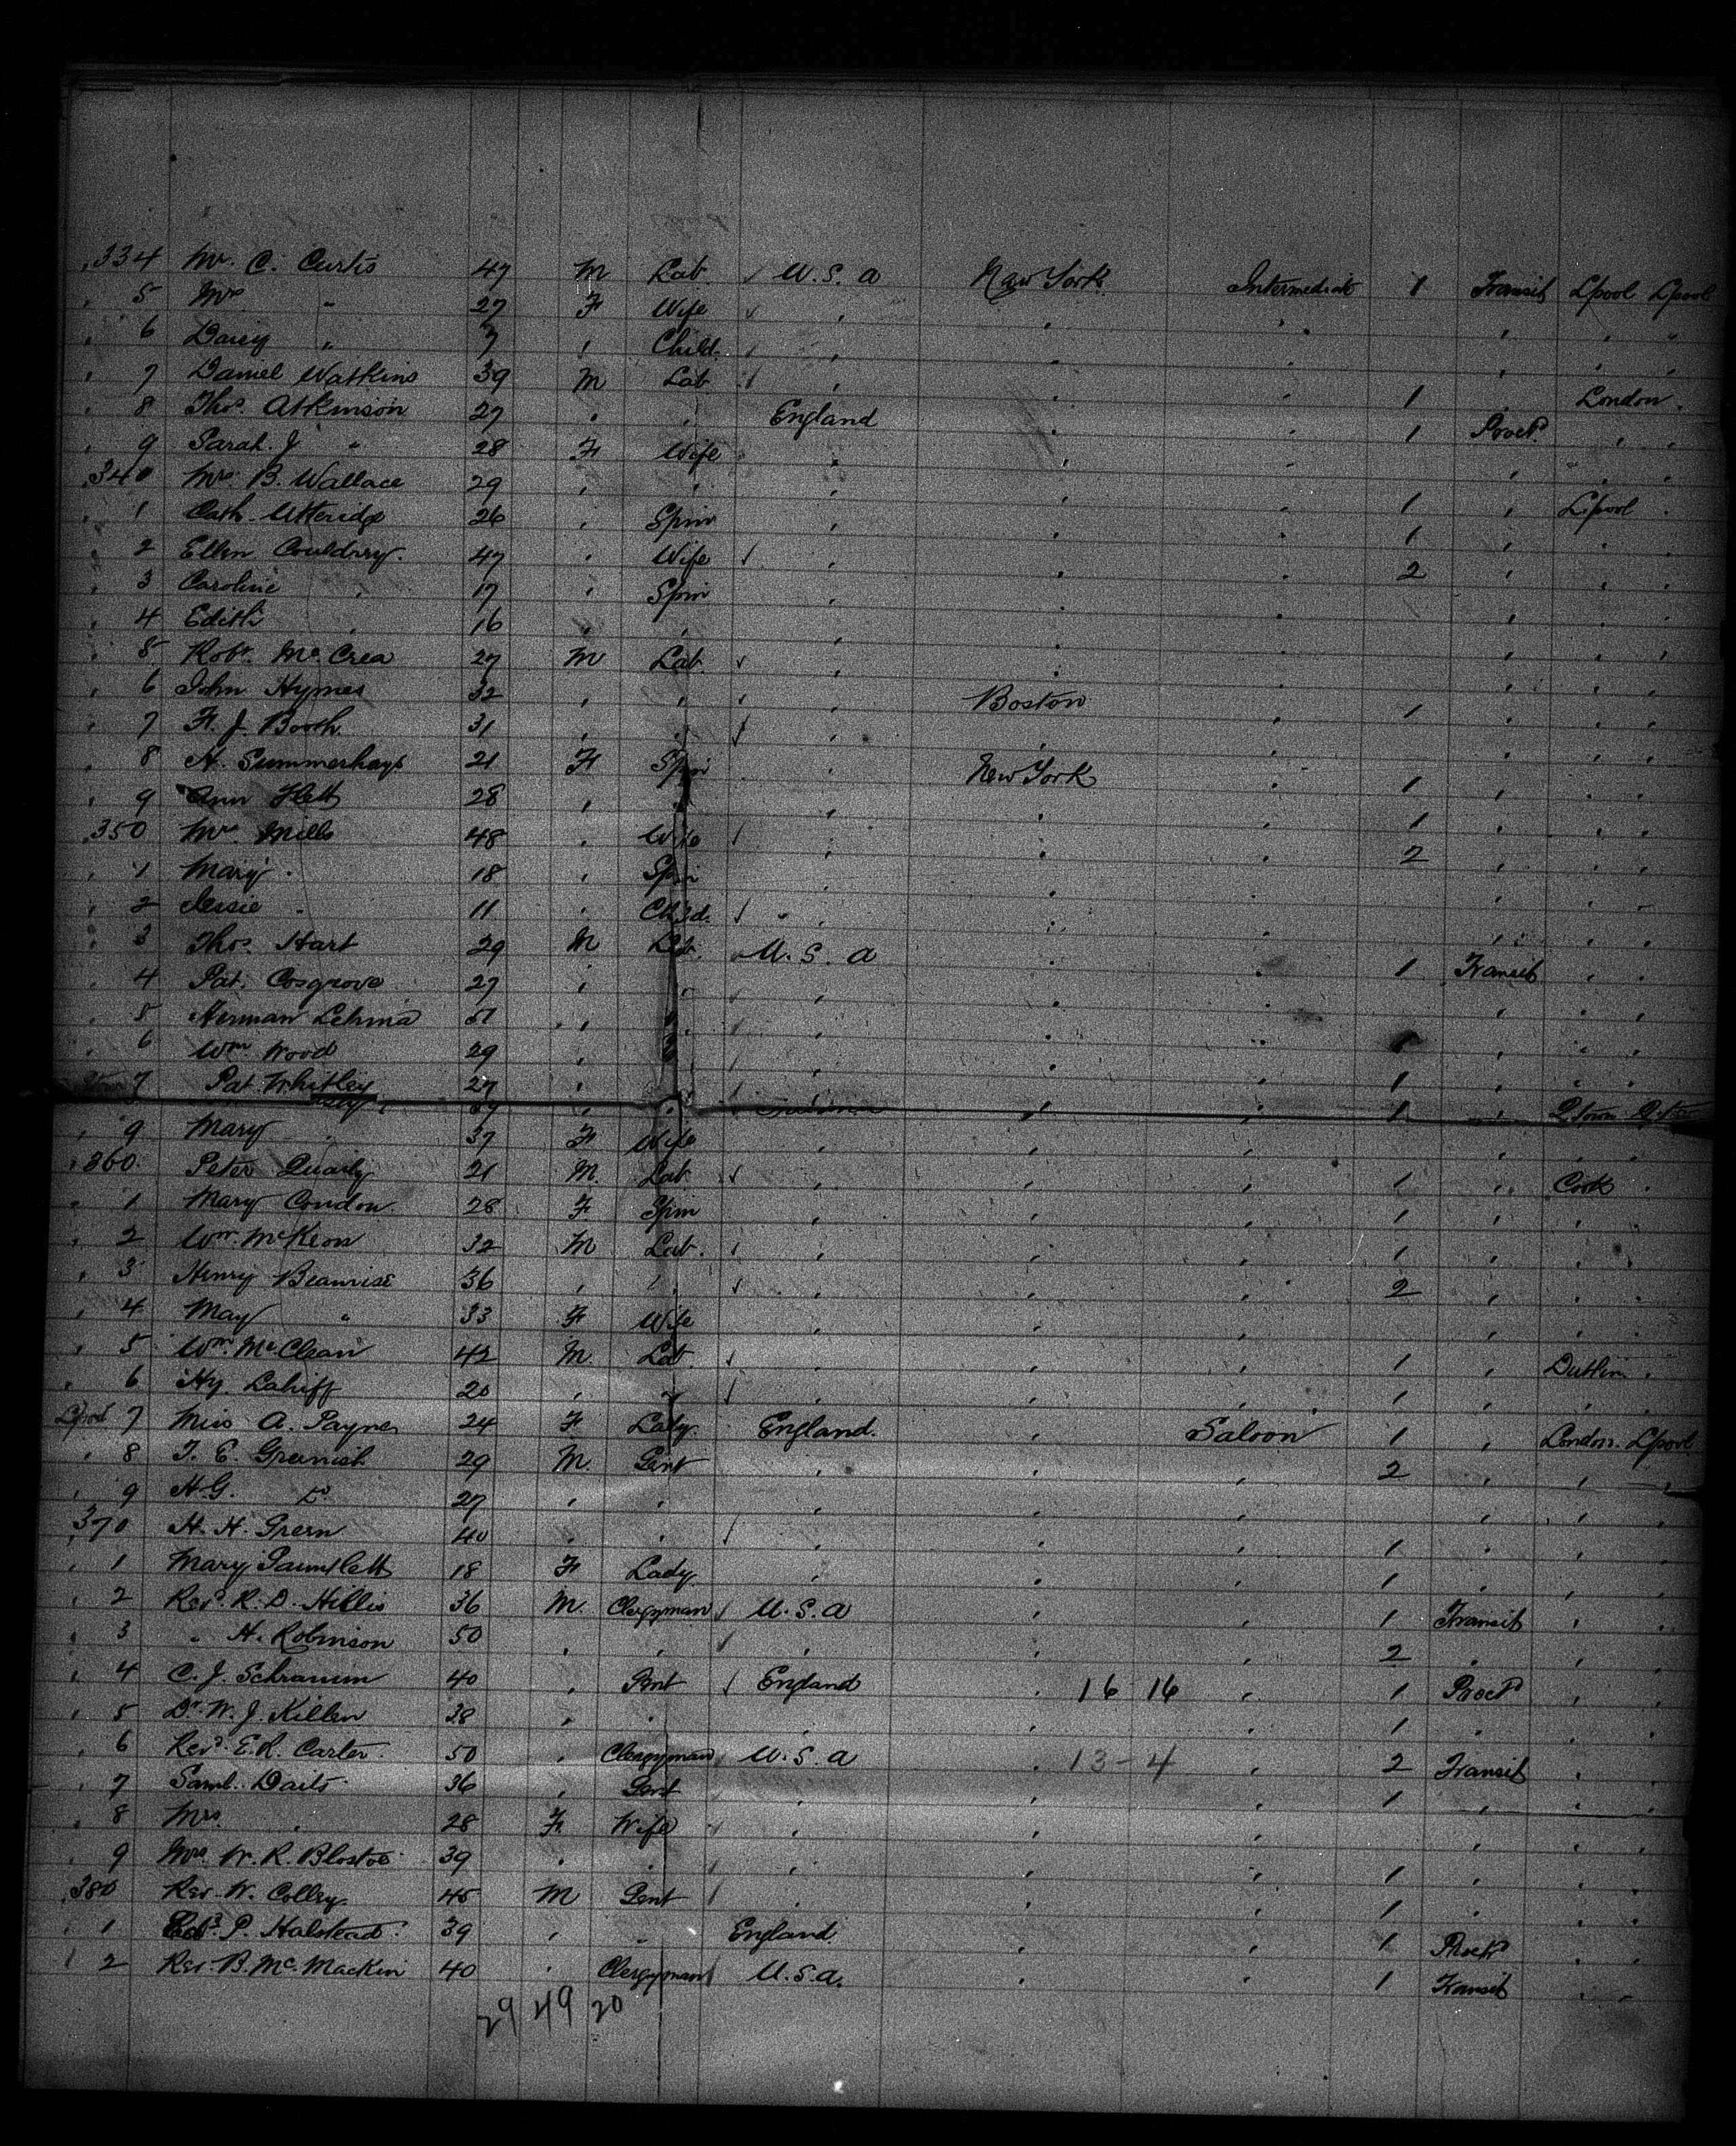 334 Mr. C. Curtis 47 M Lab. U.S.a New York Intermediate 1 Transit Lpool Lpool
5 Mrs " 27 F Wife
6 " 7 Child.
7 Daniel Watkins 39 M Lab 1 London
8 Thos. Atkinson 27 England 1 Proctd
9 Sarah J " 28 F Wife
340 Mrs. B. Wallace 29 1 Lpool
1 Cath. 26 Spin 1
2 Ellen Couldrey. 47 Wife 2
3 Caroline 17 Spin
4 Edith 16
5 Robt. Mc Crea 27 M Lab.
6 John Hymes 32 Boston 1
7 F. J. Booth 31
8 H. Summerhays 21 F Spin New York 1
9 Ann Flett 28 1
350 Mrs. Mills 48 Wife 2
1 Mary 18 Spin
2 Jessie 11 Child.
3 Thos. Hart 29 M Lab. U.S.a 1 Transit
4 Pat. Cosgrove 27
5 Herman Lehma
6 Wm Wood 29 1
7 Pat. Whitley 27 1 Qtown
9 Mary 37 F Wife
360. Peter Quarly 21 M. Lab 1 Cork
1 Mary Condon 28 F. Spin 1
2 Wm. McKeon 32 M Lab. 1
3 Henry 36 2
4 May " 33 F Wife
5 Wm. McClean 42 M. Lab. 1 Dublin
6 Hy. Lahiff 20 1
Lpool 7 Miss A. Payne 24 F Lady England. Saloon 1 London. Lpool
8 T. E. Greenish 29 M. Gent 2
9 H.G. Do 27
370 H. H. Green 40 1
1 Mary Gauntlett 18 F Lady 1
2 Revd. R. D. Hillis 36 M. Clergyman U.S.a 1 Transit
3 " H. Robinson 50 2
4 C. J. Schramm 40 Gent England 16 16 1 Proctd
5 Dr. W. J. Killen 38 1
6 Revd. E.R. Carter. 50 Clergyman U.S.a 13-4 2 Transit
7 Saml. 36 Gent 1
8 Mrs. 28 F. Wife
9 Mrs. W. R. 39 1
380 Rev. W. Colley 45 M Gent 1
1 P. Halstead 39 England. 1 Proctd
2 Rev. B. Mc. Mackin 40 Clergyman U.S.a. 1 Transit
29 49 20